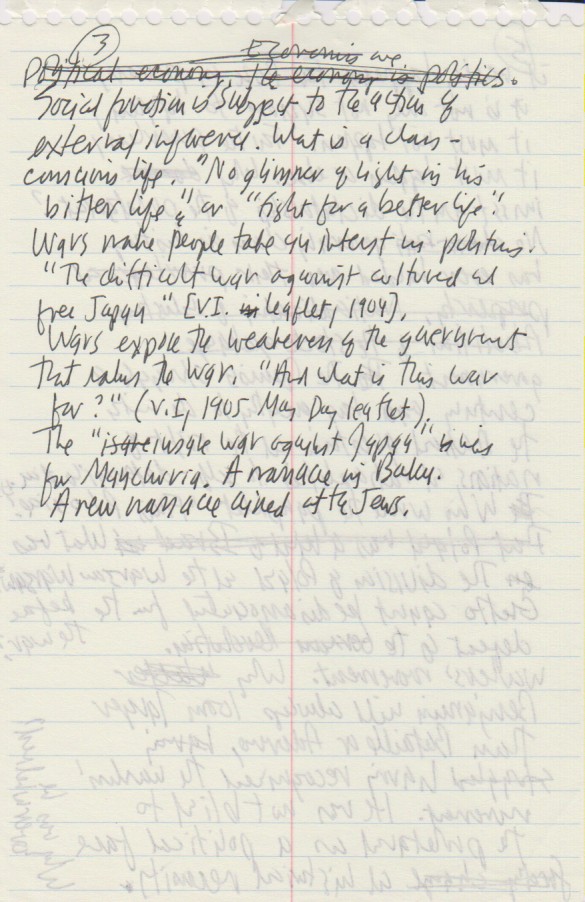 3
Economics are
Political economy. The economy is politics.
Social function is subject to the action of
external influence. What is a class-
conscious life. "No glimmer of light in his
bitter life" or "fight for a better life".
Wars make people take an interest in politics.
"The difficult war against cultured and
free Japan" [V.I. leaflet, 1904].
Wars expose the weakness of the government
that makes the war. "And what is this war
for?" (V.I, 1905 May Day leaflet).
The "insane war against Japan"
for Manchuria. A massacre in Baku.
A new massacre aimed at the Jews.